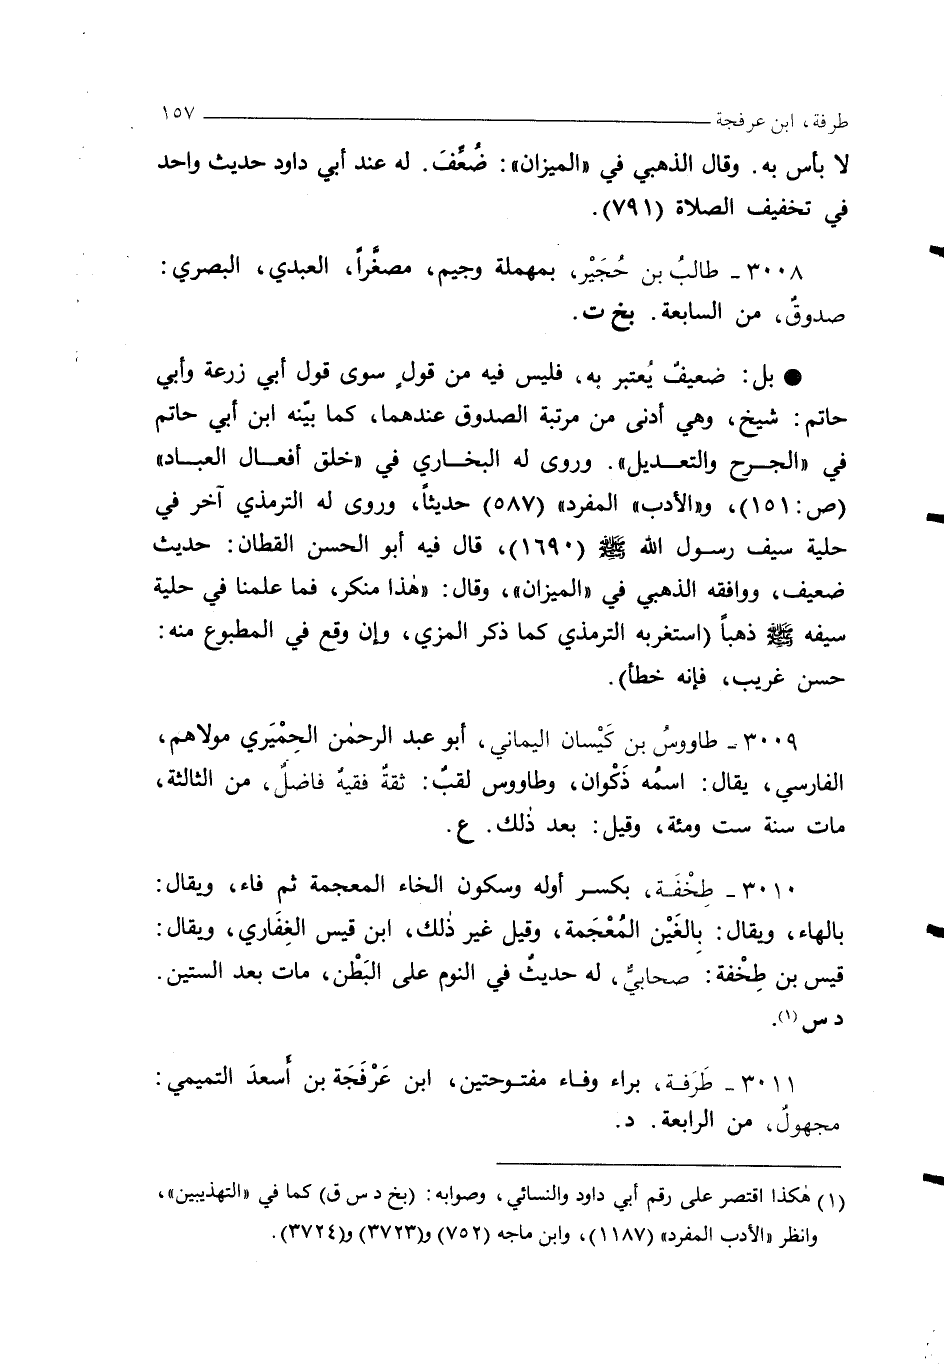 طرفة، ابن عرفجة ١٥٧
لا بأس به. وقال الذهبي في «الميزان»: ضُعِّفَ. له عند أبي داود حديث واحد
في تخفيف الصلاة (٧٩١).
٣٠٠٨ ـ طالبُ بن حُجَيْر، بمهملة وجيم، مصغَّراً، العبدي، البصري:
صدوقٌ، من السابعة. بخ ت.
● بل: ضعيفٌ يُعتبر به، فليس فيه من قولٍ سوى قول أبي زرعة وأبي
حاتم: شيخ، وهي أدنى من مرتبة الصدوق عندهما، كما بيّنه ابن أبي حاتم
في «الجرح والتعديل». وروى له البخاري في «خلق أفعال العباد»
(ص: ١٥١)، و«الأدب» المفرد» (٥٨٧) حديثاً، وروى له الترمذي آخر في
حلية سيف رسول الله ﷺ (١٦٩٠)، قال فيه أبو الحسن القطان: حديث
ضعيف، ووافقه الذهبي في «الميزان»، وقال: «هٰذا منكر، فما علمنا في حلية
سيفه ﷺ ذهباً (استغربه الترمذي كما ذكر المزي، وإن وقع في المطبوع منه:
حسن غريب، فإنه خطأ).
٣٠٠٩ ـ طاووسُ بن كَيْسان اليماني، أبو عبد الرحمٰن الحِمْيَري مولاهم،
الفارسي، يقال: اسمُه ذَكْوان، وطاووس لقبٌ: ثقةٌ فقيهٌ فاضلٌ، من الثالثة،
مات سنة ست ومئة، وقيل: بعد ذٰلك. ع.
٣٠١٠ ـ طِخْفَة، بكسر أوله وسكون الخاء المعجمة ثم فاء، ويقال:
بالهاء، ويقال: بِالغَيْن المُعْجَمة، وقيل غير ذٰلك، ابن قيس الغِفَاري، ويقال:
قيس بن طِخْفة: صحابيٌّ، له حديثٌ في النوم على البَطْن، مات بعد الستين.
د س (١).
٣٠١١ ـ طَرَفة، براء وفاء مفتوحتين، ابن عَرْفَجَة بن أَسعدَ التميمي:
مجهولٌ، من الرابعة. د.
(١) هٰكذا اقتصر على رقم أبي داود والنسائي، وصوابه: (بخ د س ق) كما في «التهذيبين»،
وانظر «الأدب المفرد» (١١٨٧)، وابن ماجه (٧٥٢) و(٣٧٢٣) و(٣٧٢٤).